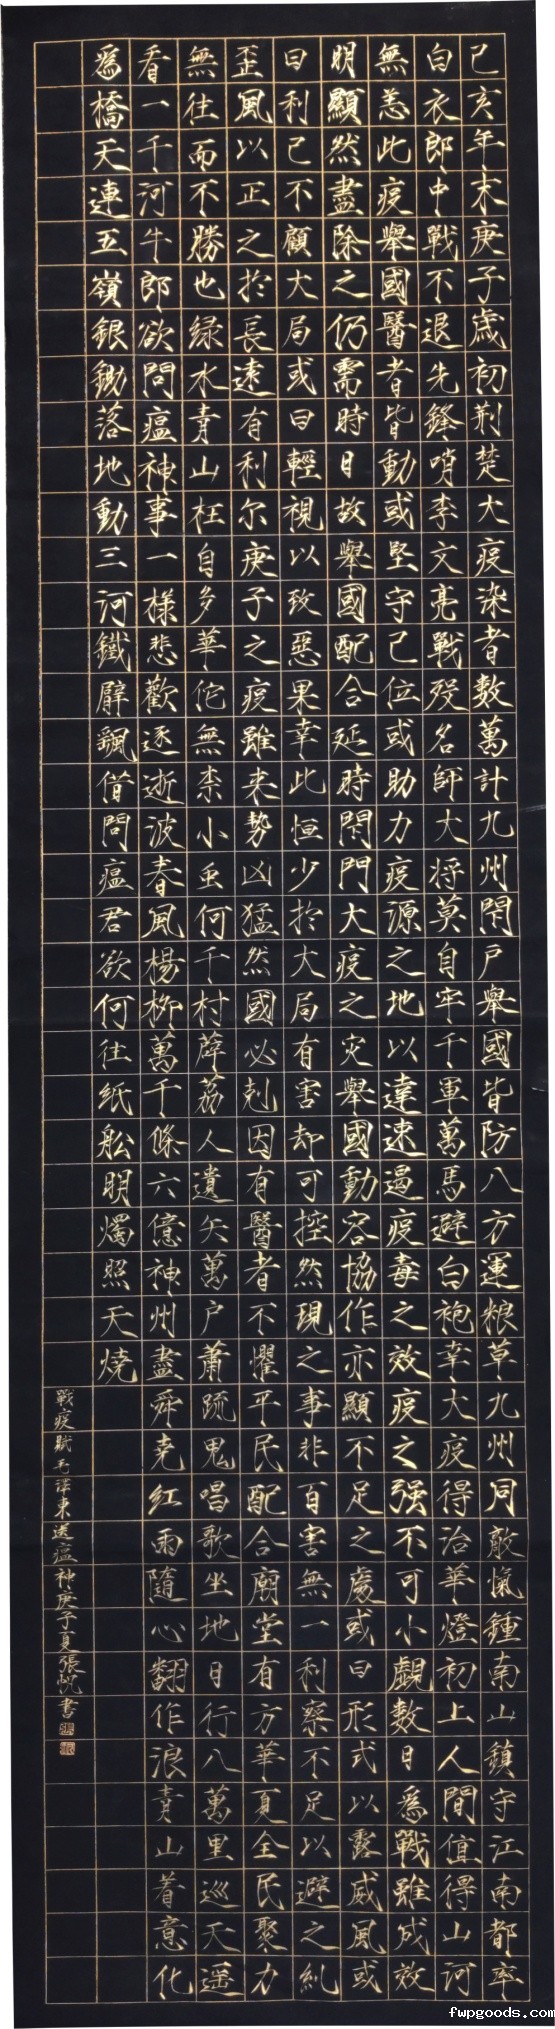 己亥年末庚子歳初荆楚大疫染者數萬計九州閇户舉國皆防八方運粮草九州同敵愾鍾南山鎮守江南都率
白衣郎中戰不退先鋒哨李文亮戰殁名師大将莫自牢千軍萬馬避白袍幸大疫得治華燈初上人間值得山河
無恙此疫舉國醫者皆動或堅守己位或助力疫源之地以達速遏疫毒之效疫之强不可小覷數日爲戰雖成效
明顯然盡除之仍需時日故舉國配合延時閇門大疫之灾舉國動容協作亦顯不足之處或曰形式以露威風或
曰利己不顧大局或曰輕視以致惡果幸此恒少於大局有害却可控然現之事非百害無一利察不足以避之糾
歪風以正之於長遠有利尔庚子之疫雖来勢凶猛然國必剋因有醫者不懼平民配合廟堂有方華夏全民聚力
無往而不勝也緑水青山枉自多華佗無柰小虫何千村薜荔人遺矢萬户蕭疏鬼唱歌坐地日行八萬里巡天遥
看一千河牛郎欲問瘟神事一樣悲歡逐逝波春風楊柳萬千條六億神州盡舜堯紅雨隨心翻作浪青山着意化
爲橋天連五嶺銀鋤落地動三河鐵臂飄借問瘟君欲何往紙船明燭照天燒
戰疫賦毛澤東送瘟神庚子夏張悦書
fwpgoods.com